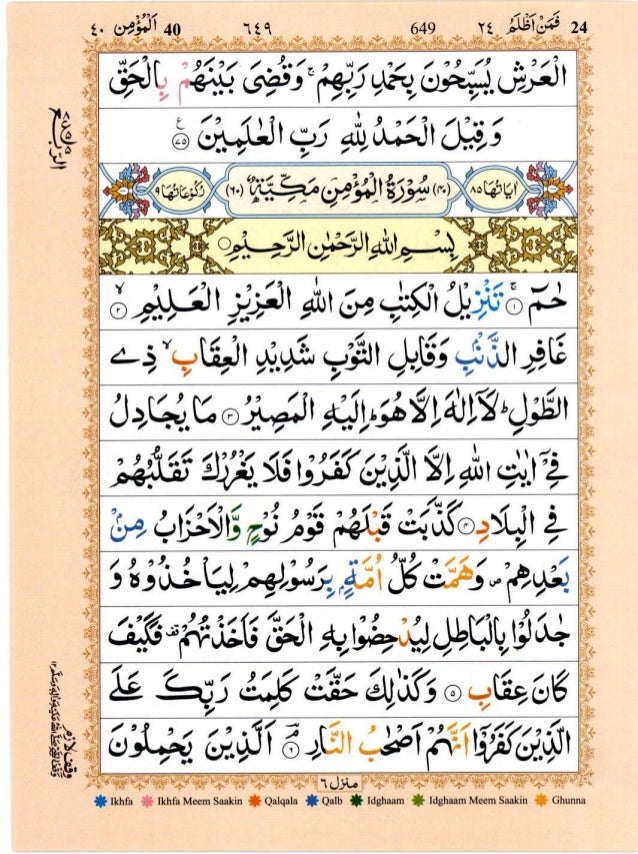 ٤٠ اَلْمُؤْمِن 40 ٦٤٩ 649 ٢٤ فَمَنْ اَظْلَمُ 24
الْعَرْشِ يُسَبِّحُوْنَ بِحَمْدِ رَبِّهِمْ ۚ وَقُضِىَ بَيْنَهُمْ بِالْحَقِّ
وَقِيْلَ الْحَمْدُ لِلّٰهِ رَبِّ الْعٰلَمِيْنَ ﴿٧٥﴾ ع
الربع
اٰيَاتُهَا ٨٥ (٤٠) سُوْرَةُ الْمُؤْمِنِ مَكِّيَّةٌ (٦٠) رُكُوْعَاتُهَا ٩
بِسْمِ اللّٰهِ الرَّحْمٰنِ الرَّحِيْمِ
حٰمٓ ۚ ﴿١﴾ تَنْزِيْلُ الْكِتٰبِ مِنَ اللّٰهِ الْعَزِيْزِ الْعَلِيْمِ ۙ ﴿٢﴾
غَافِرِ الذَّنْۢبِ وَقَابِلِ التَّوْبِ شَدِيْدِ الْعِقَابِ ۙ ذِى
الطَّوْلِ ؕ لَاۤ اِلٰهَ اِلَّا هُوَ ؕ اِلَيْهِ الْمَصِيْرُ ﴿٣﴾ مَا يُجَادِلُ
فِىْۤ اٰيٰتِ اللّٰهِ اِلَّا الَّذِيْنَ كَفَرُوْا فَلَا يَغْرُرْكَ تَقَلُّبُهُمْ
فِى الْبِلَادِ ﴿٤﴾ كَذَّبَتْ قَبْلَهُمْ قَوْمُ نُوْحٍ وَّالْاَحْزَابُ مِنْۢ
بَعْدِهِمْ ۪ وَهَمَّتْ كُلُّ اُمَّةٍۭ بِرَسُوْلِهِمْ لِيَاْخُذُوْهُ وَ
جٰدَلُوْا بِالْبَاطِلِ لِيُدْحِضُوْا بِهِ الْحَقَّ فَاَخَذْتُهُمْ ۟ فَكَيْفَ
كَانَ عِقَابِ ﴿٥﴾ وَكَذٰلِكَ حَقَّتْ كَلِمَتُ رَبِّكَ عَلَى
الَّذِيْنَ كَفَرُوْۤا اَنَّهُمْ اَصْحٰبُ النَّارِ ۘ ﴿٦﴾ اَلَّذِيْنَ يَحْمِلُوْنَ
وقف لازم
منزل ٦
Ikhfa Ikhfa Meem Saakin Qalqala Qalb Idghaam Idghaam Meem Saakin Ghunna